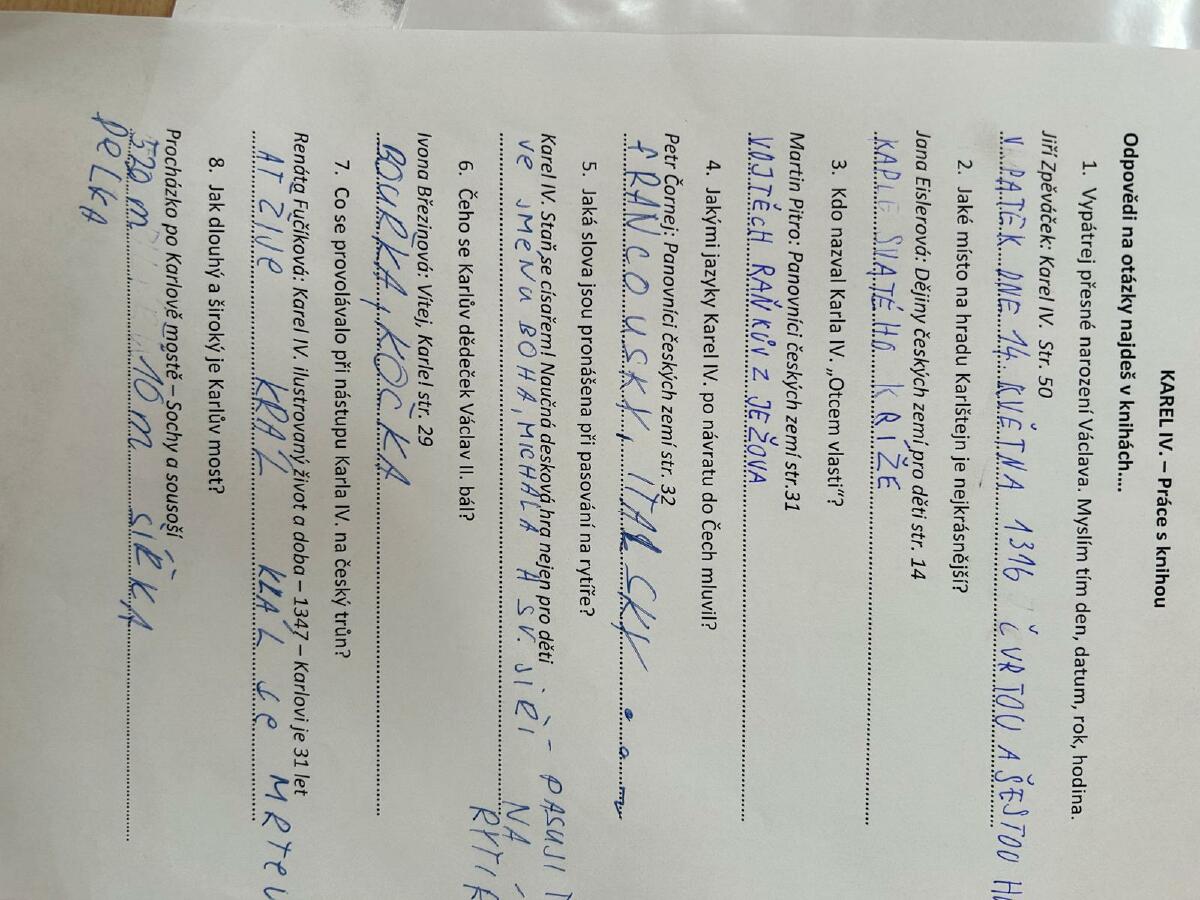 KAREL IV. – Práce s knihou
Odpovědi na otázky najdeš v knihách....
1. Vypátrej přesné narození Václava. Myslím tím den, datum, rok, hodina.
Jiří Zpěváček: Karel IV. Str. 50
V PÁTEK DNE 14. KVĚTNA 1316 ČVRTOU A ŠESTOU
2. Jaké místo na hradu Karlštejn je nejkrásnější?
Jana Eislerová: Dějiny českých zemí pro děti str. 14
KAPLE SVATÉHO KŘÍŽE
3. Kdo nazval Karla IV. „Otcem vlasti“?
Martin Pitro: Panovníci českých zemí str.31
VOJTĚCH RAŇKŮV Z JEŽOVA
4. Jakými jazyky Karel IV. po návratu do Čech mluvil?
Petr Čornej: Panovníci českých zemí str. 32
fRANCOUSKY, ITALSKY
5. Jaká slova jsou pronášena při pasování na rytíře?
Karel IV. Staň se císařem! Naučná desková hra nejen pro děti
Ve JMENU BOHA, MICHALA A SV. JIŘÍ - PASUJI
NA
6. Čeho se Karlův dědeček Václav II. bál?
Ivona Březinová: Vítej, Karle! str. 29
BOUŘKA, KOČKA
7. Co se provolávalo při nástupu Karla IV. na český trůn?
Renáta Fučíková: Karel IV. ilustrovaný život a doba – 1347 – Karlovi je 31 let
AT ŽIJe KRÁL KRÁL Je
8. Jak dlouhý a široký je Karlův most?
Procházko po Karlově mostě – Sochy a sousoší
520 m 10 m ŠÍŘKA
DELKA